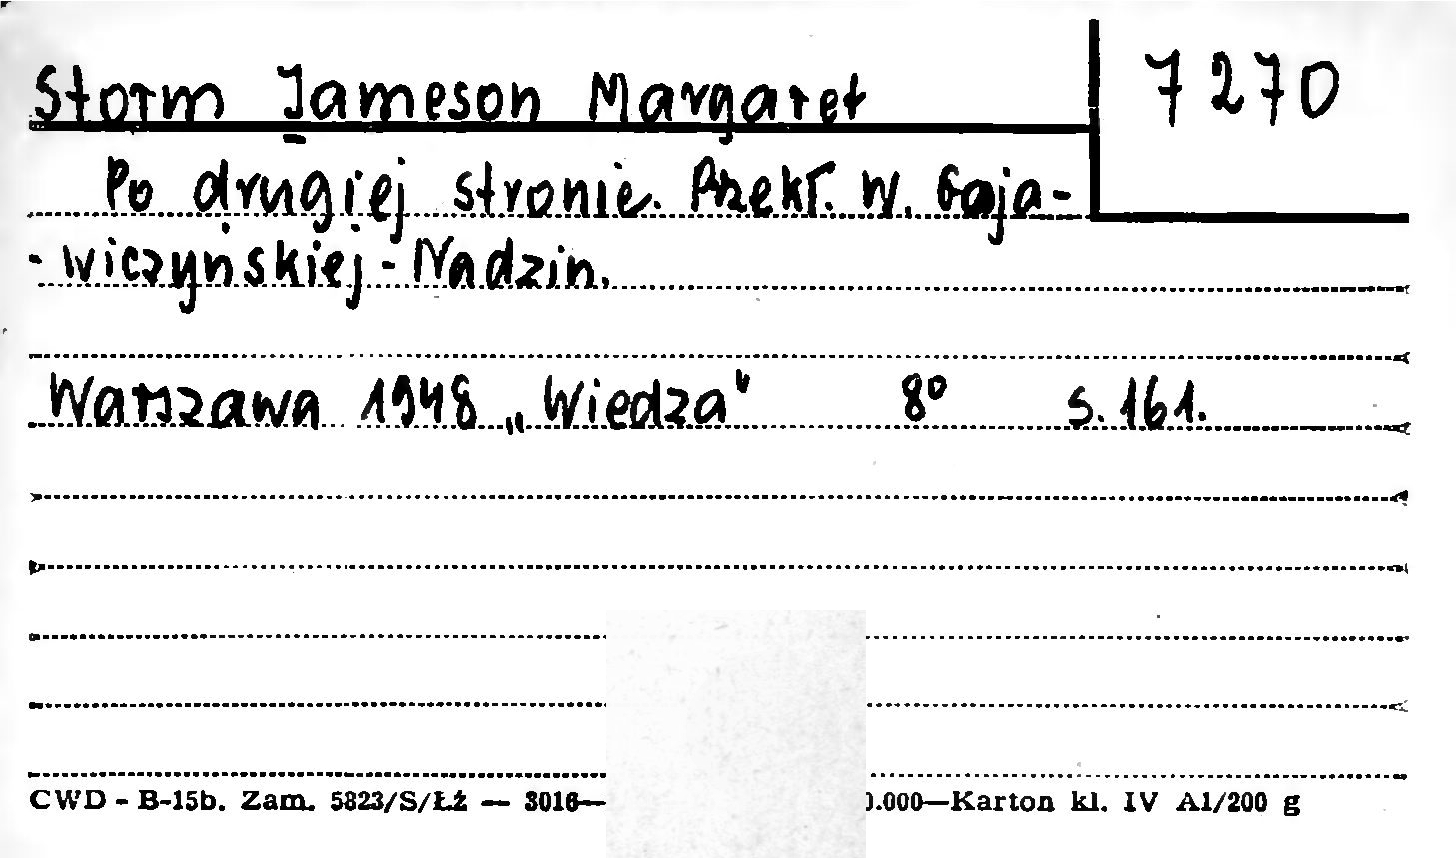 Storm Jameson Margaret
7270
Po drugiej stronie. Przekł. W. Gaja-
-wiczyńskiej-Nadzin.
Warszawa 1948 „Wiedza" 8° s. 161.
CWD - B-15b. Zam. 5823/S/Łż — 3016— 0.000—Karton kl. IV A1/200 g